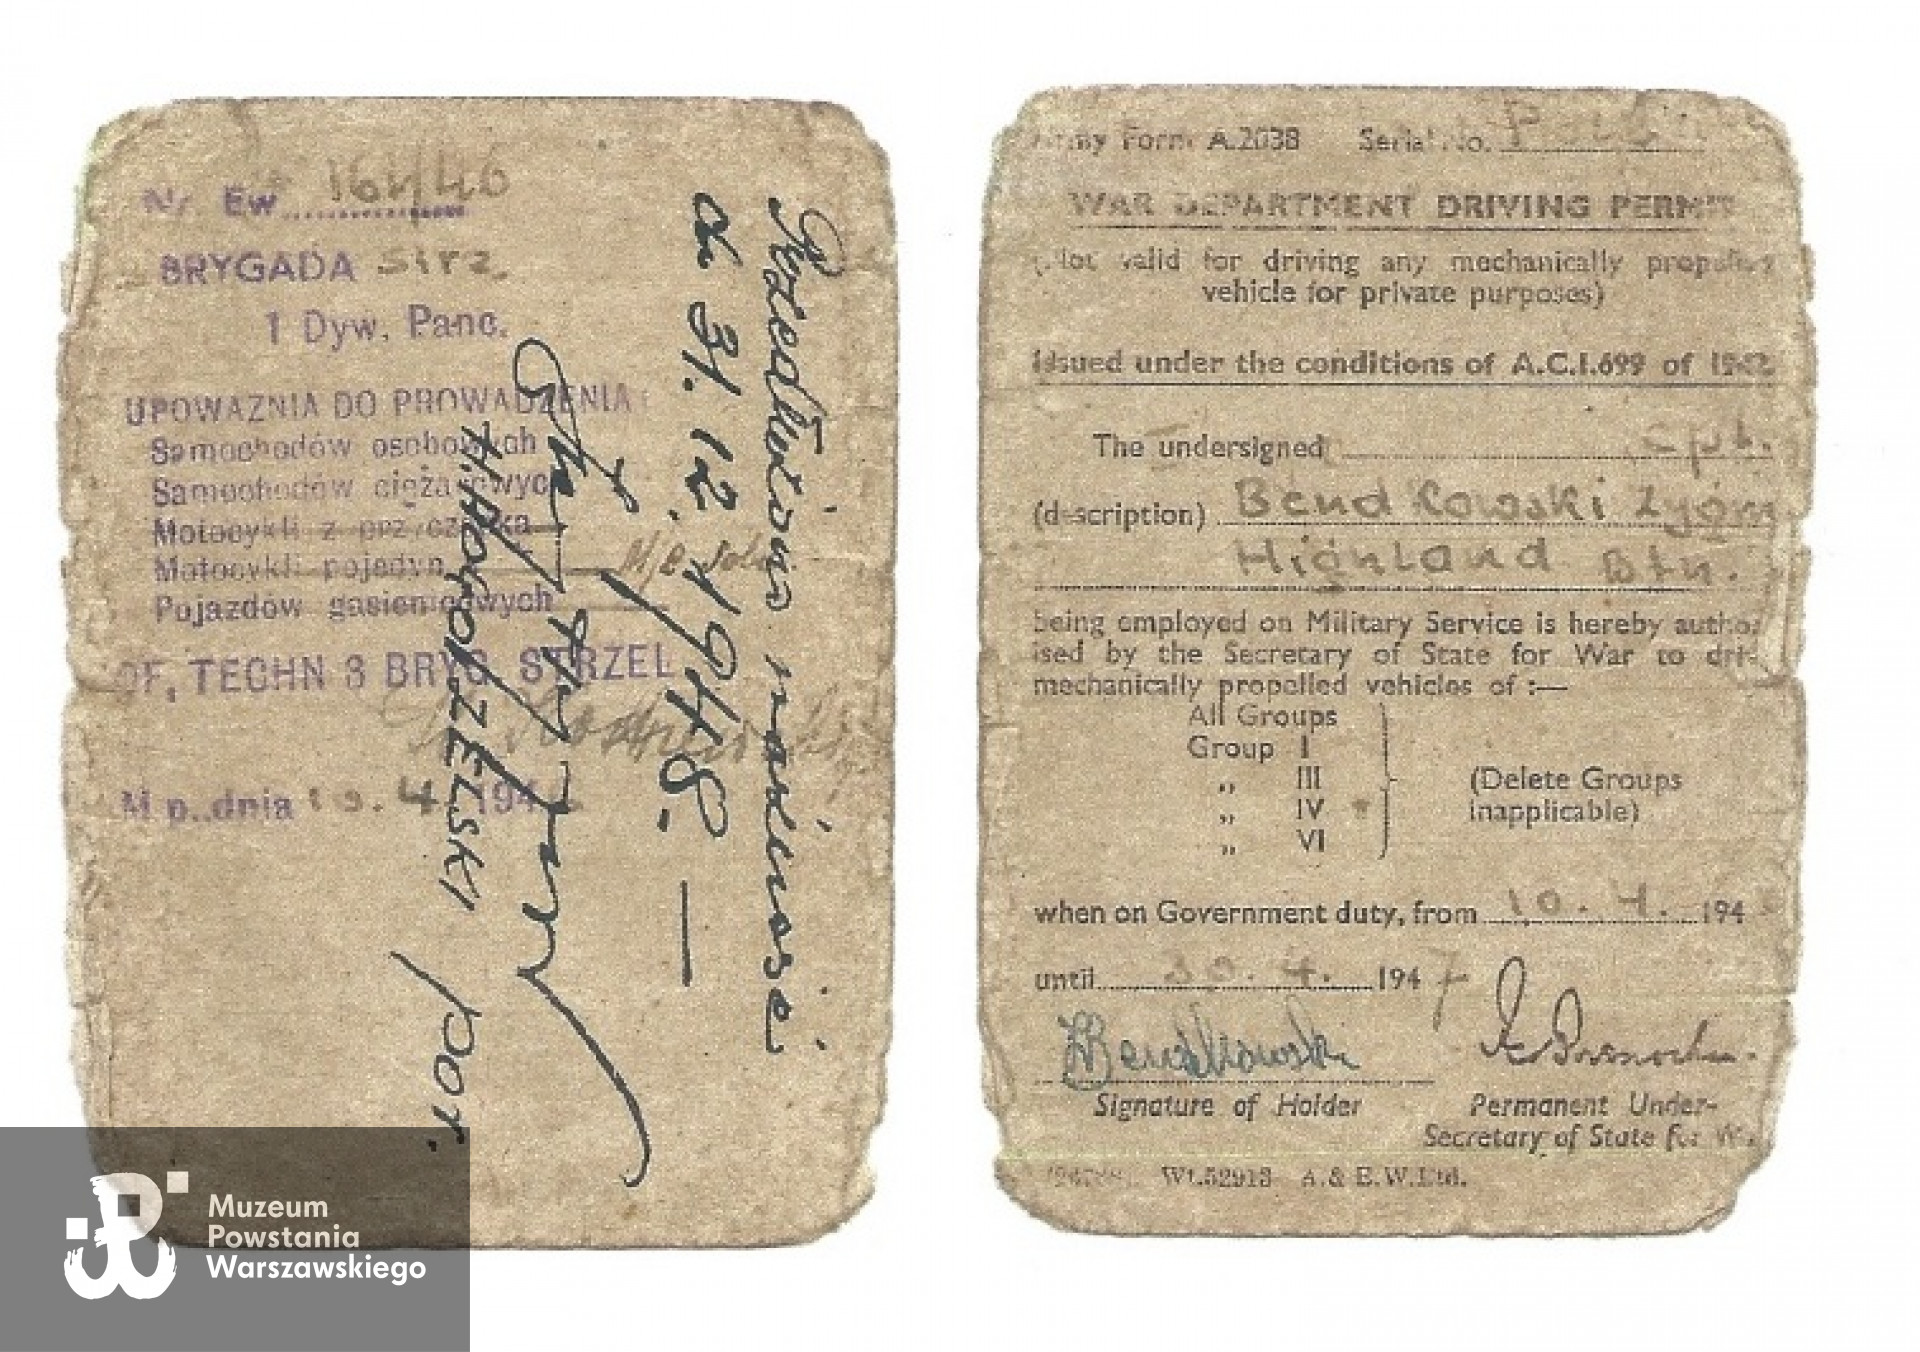 Nr. Ew. 164/46
BRYGADA Strz.
1 Dyw. Panc.
UPOWAŻNIA DO PROWADZENIA:
Samochodów osobowych
Samochodów ciężarowych
Motocykli z przyczepką
Motocykli pojedyn.
Pojazdów gąsienicowych
OF. TECHN 3 BRYG. STRZEL
M p. dnia 10. 4. 194
Przedłużono ważność
do 31. 12. 1948. —
por.
Army Form A.2038 Serial No.
WAR DEPARTMENT DRIVING PERMIT
(Not valid for driving any mechanically propelled
vehicle for private purposes)
Issued under the conditions of A.C.I.699 of 1942
The undersigned
(description) Bendkowski Zygm
Highland Btn.
being employed on Military Service is hereby author-
ised by the Secretary of State for War to drive
mechanically propelled vehicles of :—
All Groups
Group I
„ III
„ IV
„ VI
(Delete Groups
inapplicable)
when on Government duty, from 10. 4. 194
until 30. 4. 1947
ZBendkowski
Signature of Holder
Permanent Under-
Secretary of State for War
Wt.52913 A. & E.W.Ltd.
Muzeum
Powstania
Warszawskiego